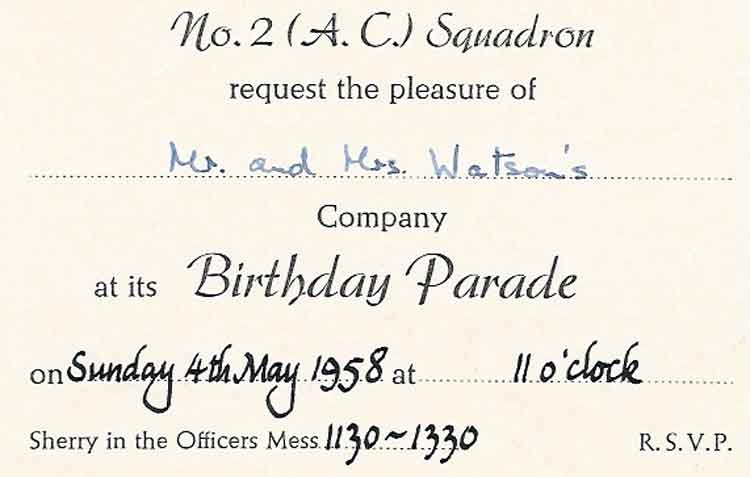 No. 2 (A. C.) Squadron
request the pleasure of
Mr. and Mrs. Watson's
Company
at its Birthday Parade
on Sunday 4th May 1958 at 11 o'clock
Sherry in the Officers Mess 1130~1330 R. S. V. P.